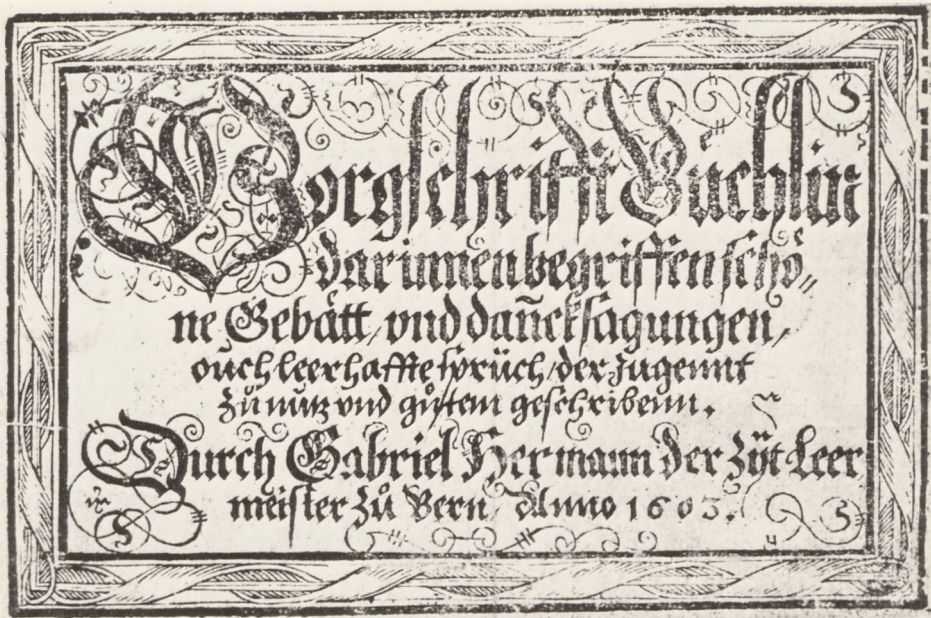 Vorgschrifft Büchlin
darinnen begriffen schö„
ne Gebätt, vnd dañcksagungen,
ouch leerhaffte sprüch, der Jugennt
zů nutz vnd gůtem geschribenn.
Durch Gabriel Hermann der Zÿt Leer
meister zů Bern, Anno 1603.